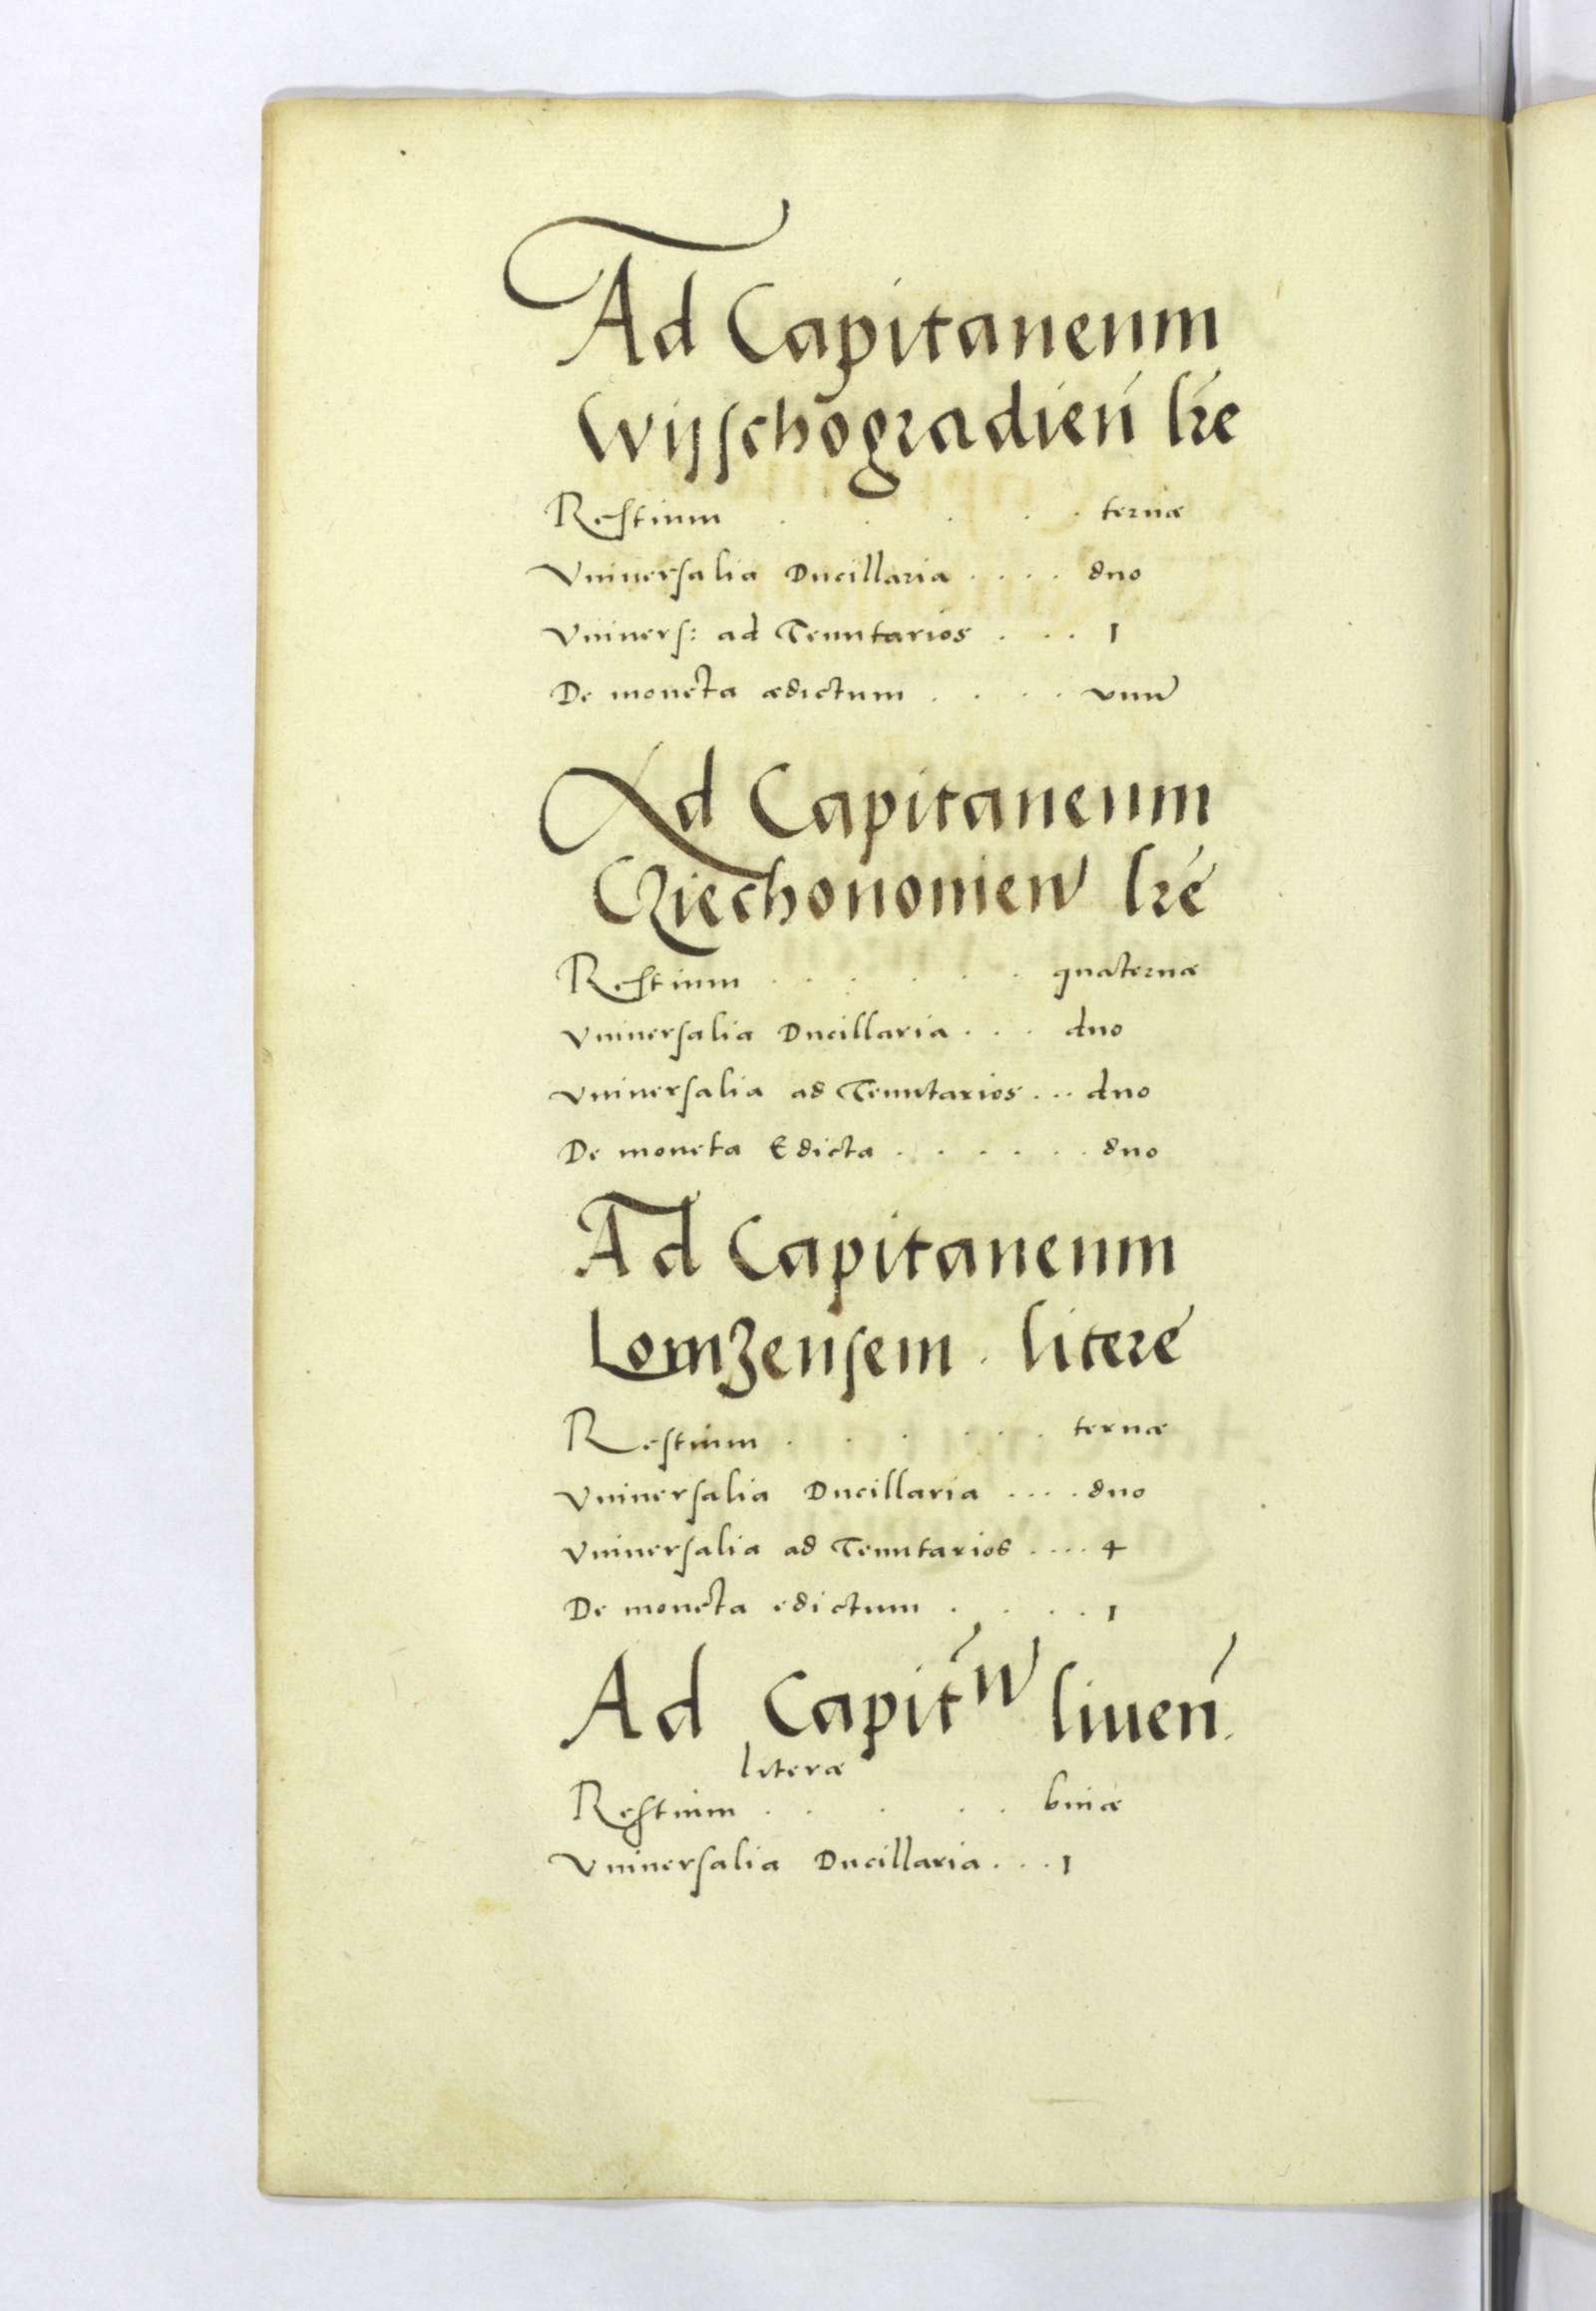 Ad Capitaneum
Wijschogradień lr̃e
Restium . . . . . ternæ
Vniuersalia Ducillaria . . . . duo
Vniuers: ad Tenutarios . . . 1
De moneta ædictum . . . . vnũ
Ad Capitaneum
Cziechonouien̄ lr̃e
Restium . . . . . . quaternæ
Vniuersalia Ducillaria . . . duo
Vniuersalia ad Tenutarios . . . duo
De moneta Edicta . . . . . . duo
Ad Capitaneum
Lomzensem . litere
Restium . . . . . . ternæ
Vniuersalia Ducillaria . . . . duo
Vniuersalia ad Tenutarios . . . . 4
De moneta edictum . . . . 1
Ad Capit̃ũ liueń.
literæ
Restium . . . . . binæ
Vniuersalia Ducillaria . . . 1